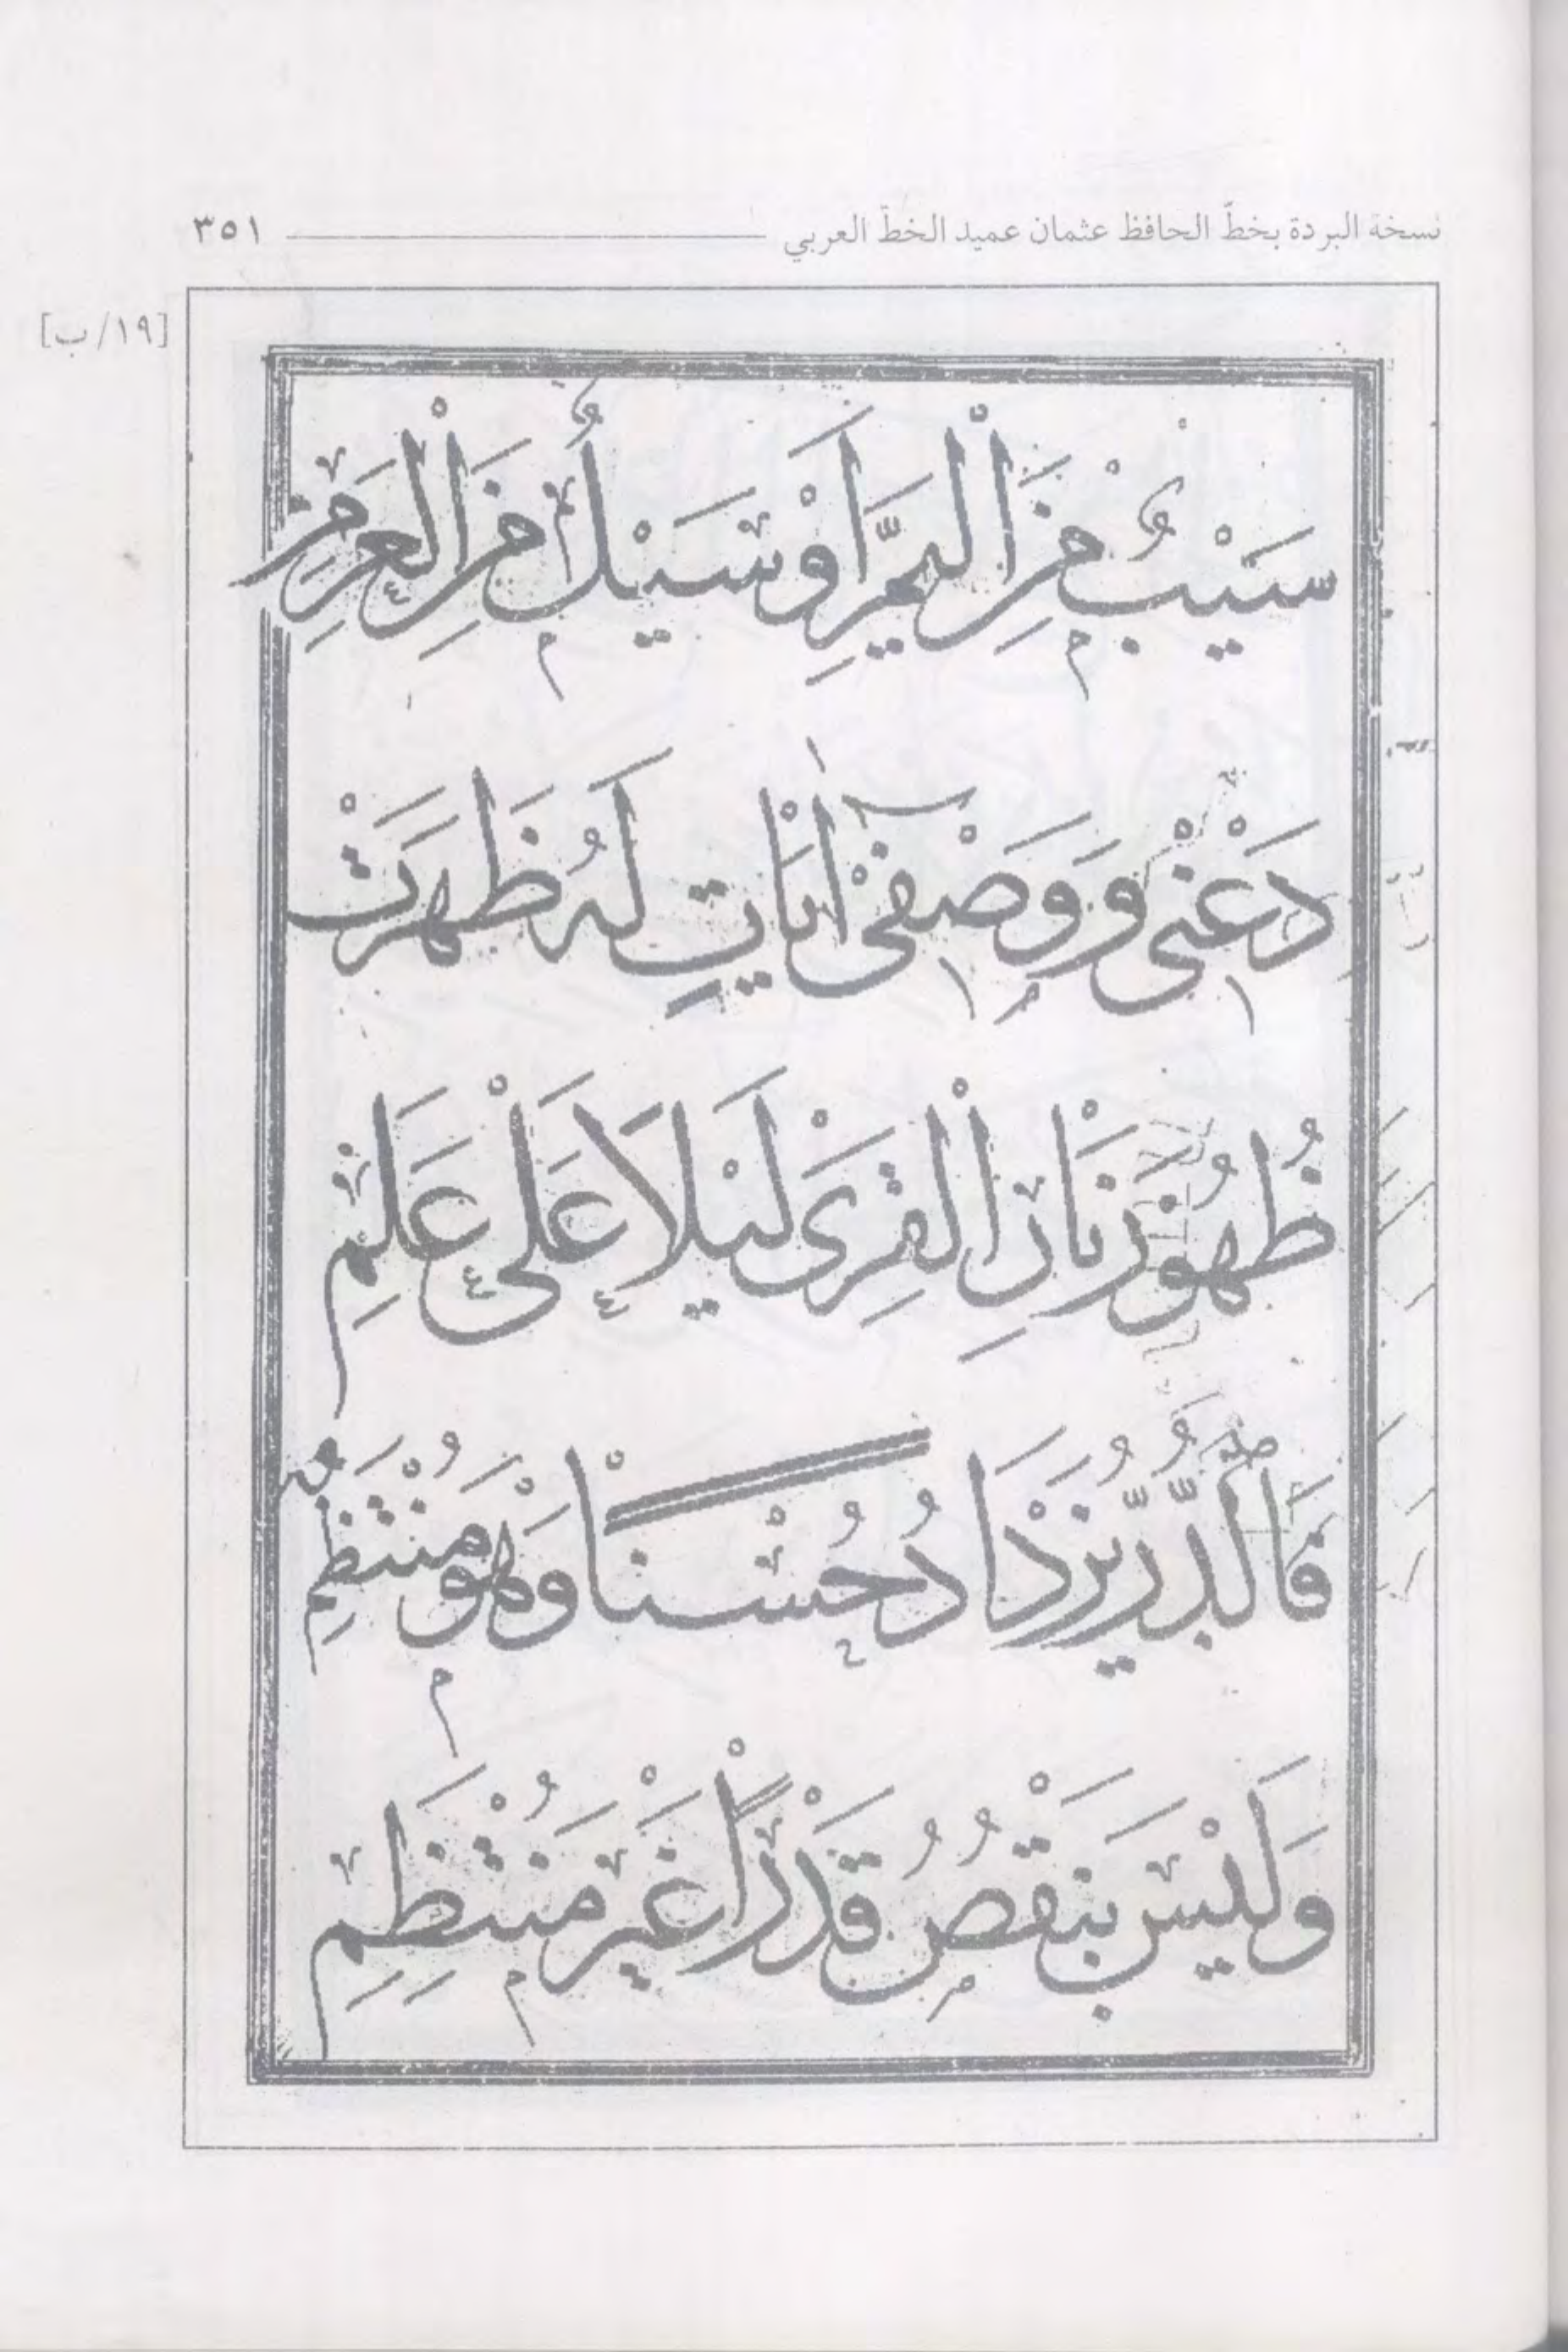 نسخة البردة بخطّ الحافظ عثمان عميد الخطّ العربي ٣٥١
[١٩/ب]
سَيْبٌ مِنَ الْيَمِّ اَوْ سَيْلٌ مِنَ الْعَرِمِ
دَعْنِى وَوَصْفِىٓ اٰيَاتٍ لَهُ ظَهَرَتْ
ظُهُورَ نَارِ الْقِرٰى لَيْلًا عَلٰى عَلَمِ
فَالدُّرُّ يَزْدَادُ حُسْنًا وَهْوَ مُنْتَظِمٌ
وَلَيْسَ يَنْقُصُ قَدْرًا غَيْرَ مُنْتَظِمِ